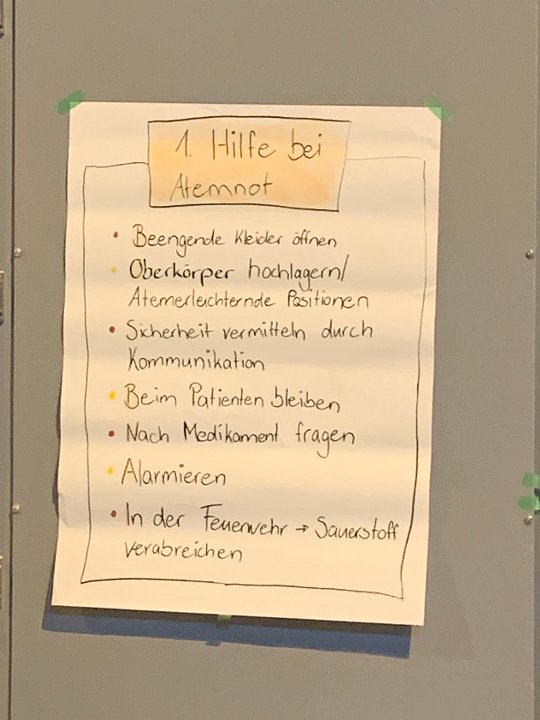 1. Hilfe bei
Atemnot
• Beengende Kleider öffnen
• Oberkörper hochlagern/
Atemerleichternde Positionen
• Sicherheit vermitteln durch
Kommunikation
• Beim Patienten bleiben
• Nach Medikament fragen
• Alarmieren
• In der Feuerwehr → Sauerstoff
verabreichen